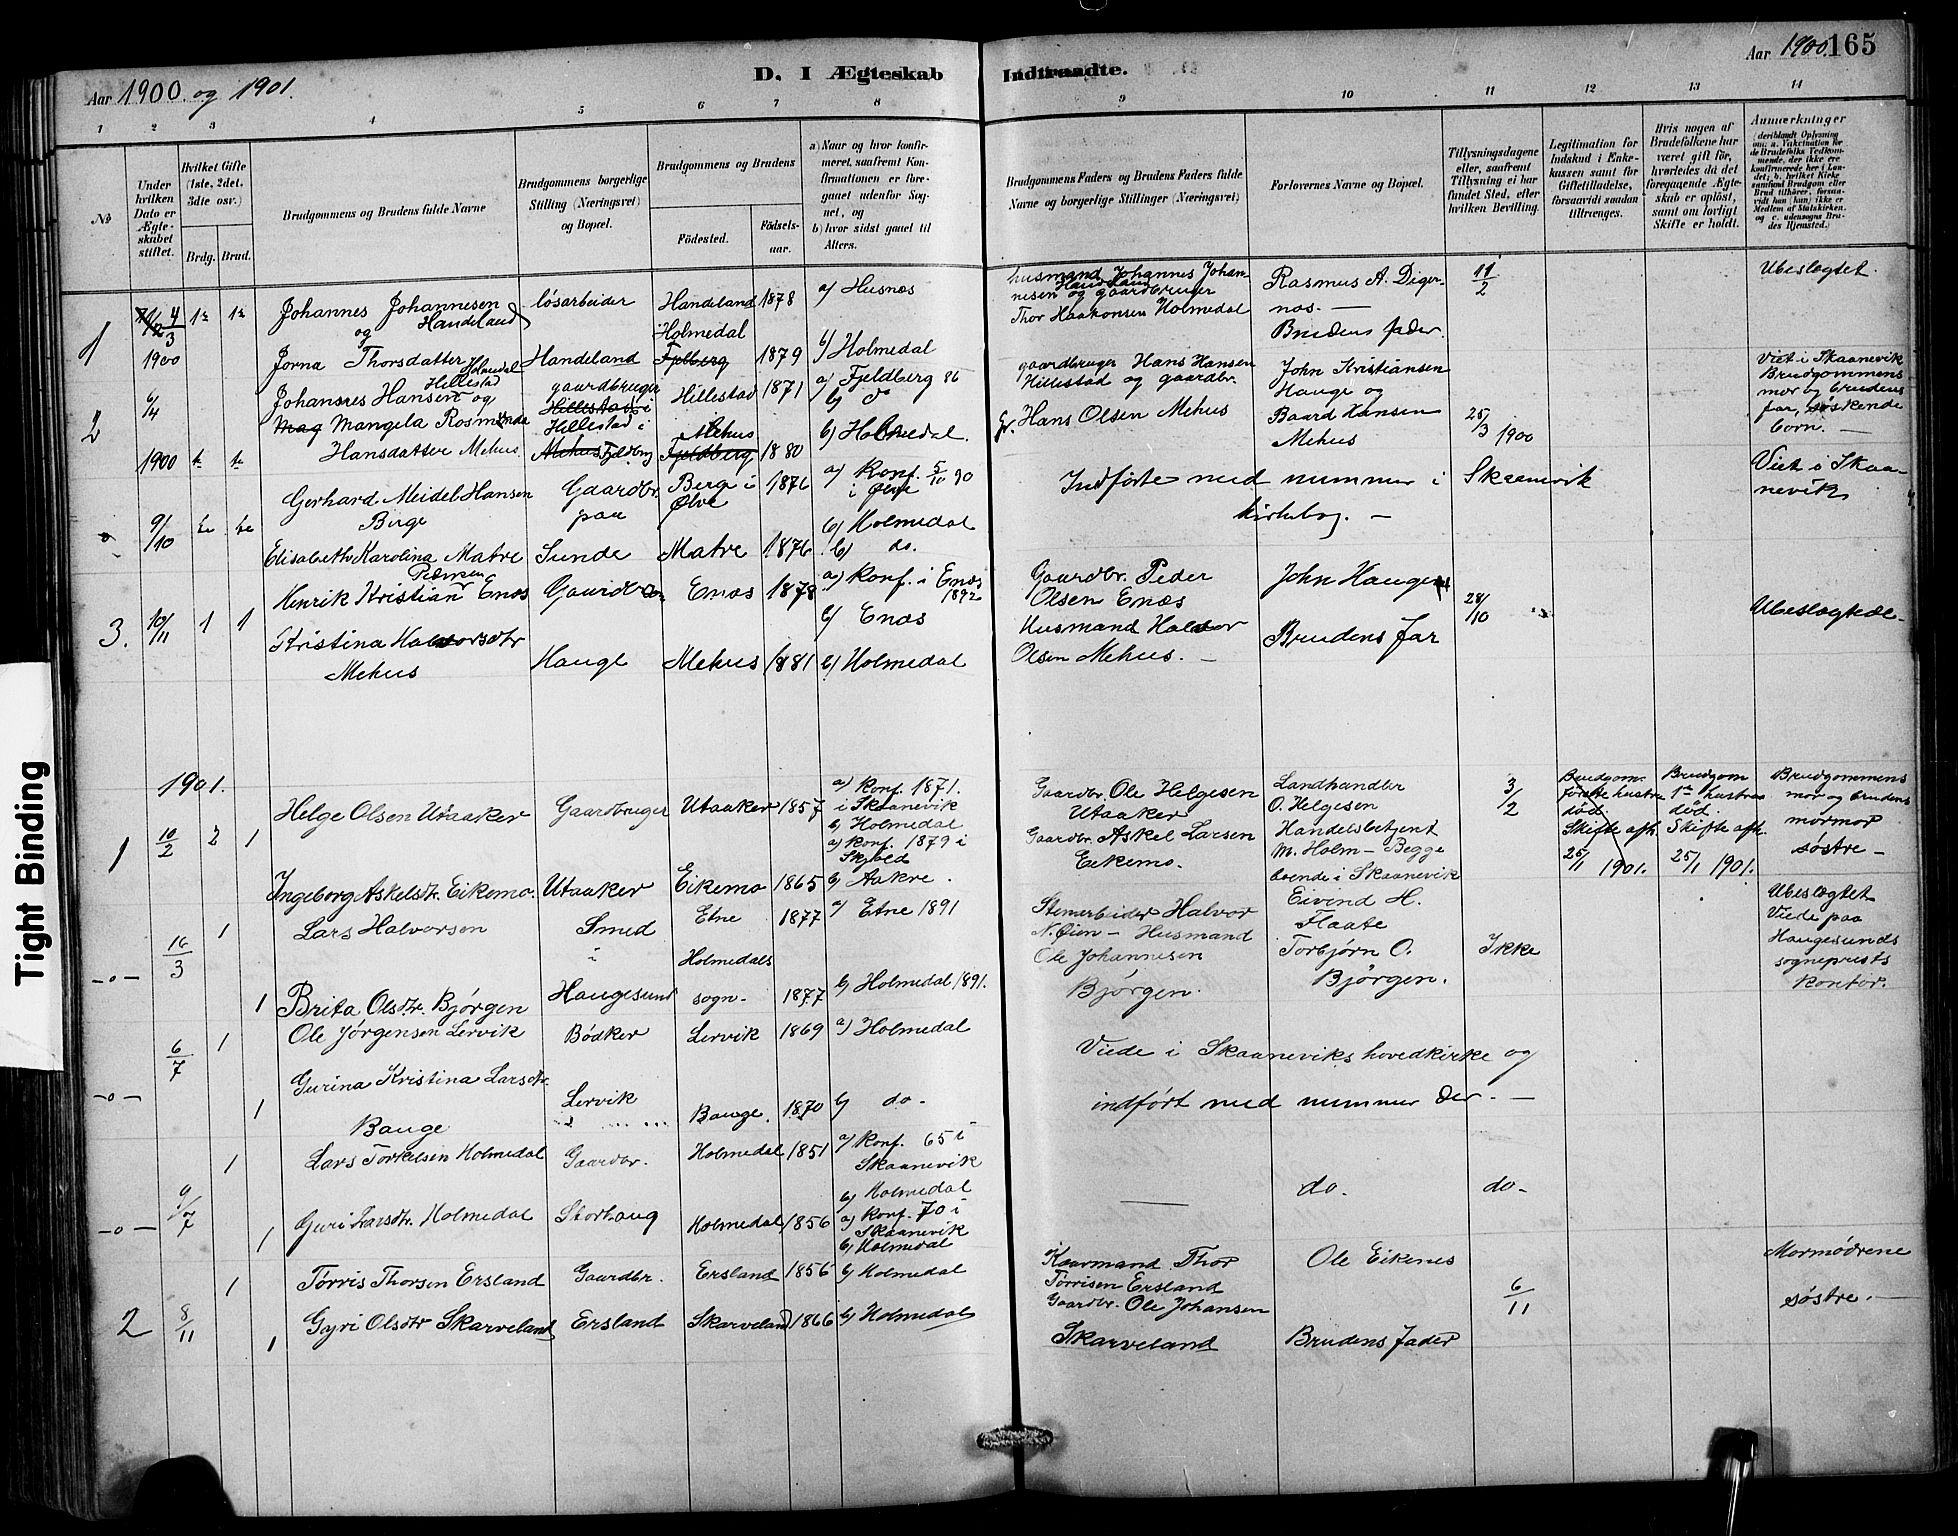 Aar 1900 og 1901.
D. I Ægteskab
Indtraadte.
Aar 1900. 165
1 2 3 4 5 6 7 8
9 10 11 12 13 14
No
Under hvilken Dato er Ægteskabet stiftet.
Hvilket Gifte (1ste, 2det, 3dte osv.)
Brdg. Brud.
Brudgommens og Brudens fulde Navne
Brudgommens borgerlige Stilling (Næringsvei) og Bopæl.
Brudgommens og Brudens
Födested.
Födsels-aar.
a) Naar og hvor konfirmeret, saafremt Konfirmationen er foregaaet udenfor Sognet, og
b) hvor sidst gaaet til Alters.
Brudgommens Faders og Brudens Faders fulde Navne og borgerlige Stillinger (Næringsvei)
Forlovernes Navne og Bopæl.
Tillysningsdagene eller, saafremt Tillysning ei har fundet Sted, efter hvilken Bevilling.
Legitimation for Indskud i Enkekassen samt for Giftetilladelse, forsaavidt saadan tiltrænges.
Hvis nogen af Brudefolkene har været gift för, hvorledes da det foregaaende Ægteskab er oplöst, samt om lovligt Skifte er holdt.
Anmærkninger
(deriblandt Oplysning om: a. Vakcination for de Brudefolks Vedkommende, der ikke ere konfirmerede her i Landet; b. hvilket Kirkesamfund Brudgom eller Brud tilhörer, forsaavidt han (hun) ikke er Medlem af Statskirken, og c. udensogns Brudes Hjemsted.)
1 4/3 1900 1te 1te
Johannes Johannesen Handeland
og
Jorna Thorsdatter Holmedal
løsarbeider
Handeland
Handeland 1878
Holmedal
Fjelberg 1879
a) Husnæs
b) Holmedal
husmand Johannes Johannesen Handeland og gaardbruger
Thor Haakonsen Holmedal
Rasmus A. Digernæs.—
Brudens fader.
11/2
Ubeslegtet.
2 6/4 1900 1te 1te
Johannes Hansen Hillestad og
Mag Mangela Rosminda
Hansdatter Mehus.
gaardbruger
Hillestad i
Hillestad i
Mehus Fjeldberg
Hillestad 1871
Mehus
Fjeldberg 1880
a) Fjeldberg 86
b) do
b) Holmedal.
gaardbruger Hans Hansen
Hillestad og gaardbr.
Gr. Hans Olsen Mehus
John Kristiansen
Hauge og
Baard Hansen
Mehus
25/3 1900
Viet i Skaanevik
Brudgommens
mor og brudens
far, søskende
børn.—
9/10 1te 1te
Gerhard Meidel Hansen
Berge
Elisabeth Karolina Matre
Gaardbr.
paa
Sunde
Berge i
Ølve 1876
Matre 1876
a) Konf. 5/10 90
i Ølve
b) Holmedal
b) do.
Indførte med nummer i Skaanevik
kirkebog.—
Viet i Skaanevik
3. 10/11 1 1
Henrik Kristian Pedersen Enæs
Kristina Halvorsdtr
Mehus
Gaardbr.
Hauge
Enæs 1878
Mehus 1881
a) Konf. i Enæs 1892
b) Enæs
b) Holmedal
Gaardbr. Peder
Olsen Enæs
Husmand Halvor
Olsen Mehus.—
John Hauge
Brudens far
28/10
Ubeslægtede
1901.
1 10/2 2 1
Helge Olsen Utaaker
Ingeborg Askelsdtr. Eikemo.
Gaardbruger
Utaaker
Utaaker 1857
Eikemo 1865
a) Konf. 1871.
i Skaanevik
b) Holmedal
a) Konf. 1879 i
Skjold
b) Aakre.
Gaardbr. Ole Helgesen
Utaaker
Gaardbr. Askel Larsen
Eikemo.
Landhandler
O. Helgesen
Handelsbetjent
M. Holm — Begge
boende i Skaanevik
3/2
Brudgom.
første hustru
død.
Skifte afh.
25/1 1901.
Brudgom
1te hustru
død.
Skifte afh.
25/1 1901.
Brudgommens
mor og brudens
mormor
søstre—
—o— 16/3 1 1
Lars Halvorsen
Brita Olsdtr. Bjørgen
Smed
i
Haugesund
Etne 1877
Holmedals
sogn— 1877
a) Etne 1891
b) Holmedal 1891.
Stenarbeider Halvor
N. Øien — Husmand
Ole Johannesen
Bjørgen.
Eivind H.
Flaate
Torbjørn O.
Bjørgen.
Ikke
Ubeslegtet
Viede paa
Haugesunds
sogneprests
kontor.
—o— 6/7 1 1
Ole Jørgensen Lervik
Gurina Kristina Larsdtr.
Bauge
Bødker
Lervik
Lervik 1869
Bauge. 1870
a) Holmedal
b) do.
Viede i Skaaneviks hovedkirke og
indført med nummer der.—
—o— 9/7 1 1
Lars Torkelsen Holmedal
Guri Larsdtr. Holmedal
Gaardbr.
Storhaug
Holmedal 1851
Holmedal 1856
a) Konf. 65 i
Skaanevik
b) Holmedal
a) Konf. 70 i
Skaanevik
b) Holmedal
— do. do.
2 8/11 1 1
Tørris Thorsen Ersland
Gyri Olsdtr Skarveland
Gaardbr.
Ersland
Ersland 1856
Skarveland 1866
b) Holmedal
b) Holmedal
Kaarmand Thor
Tørrisen Ersland
Gaardbr. Ole Johansen
Skarveland
Ole Eikenes
Brudens Fader
6/11
Mormødrene
søstre.—
Tight Binding